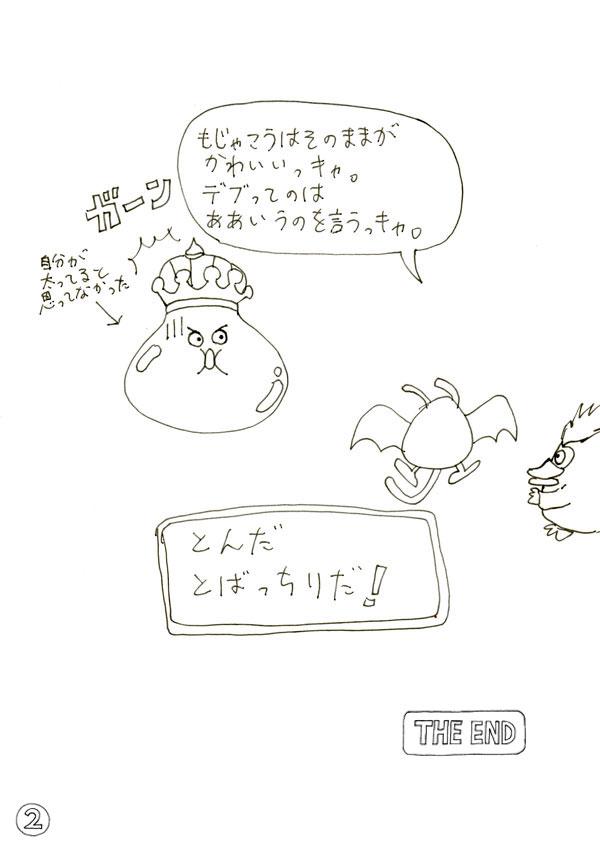 もじゃこうはそのままが
かわいいっキャ。
デブってのは
ああいうのを言うっキャ。
ガーン
自分が
太ってると
思ってなかった
とんだ
とばっちりだ!
THE END
2